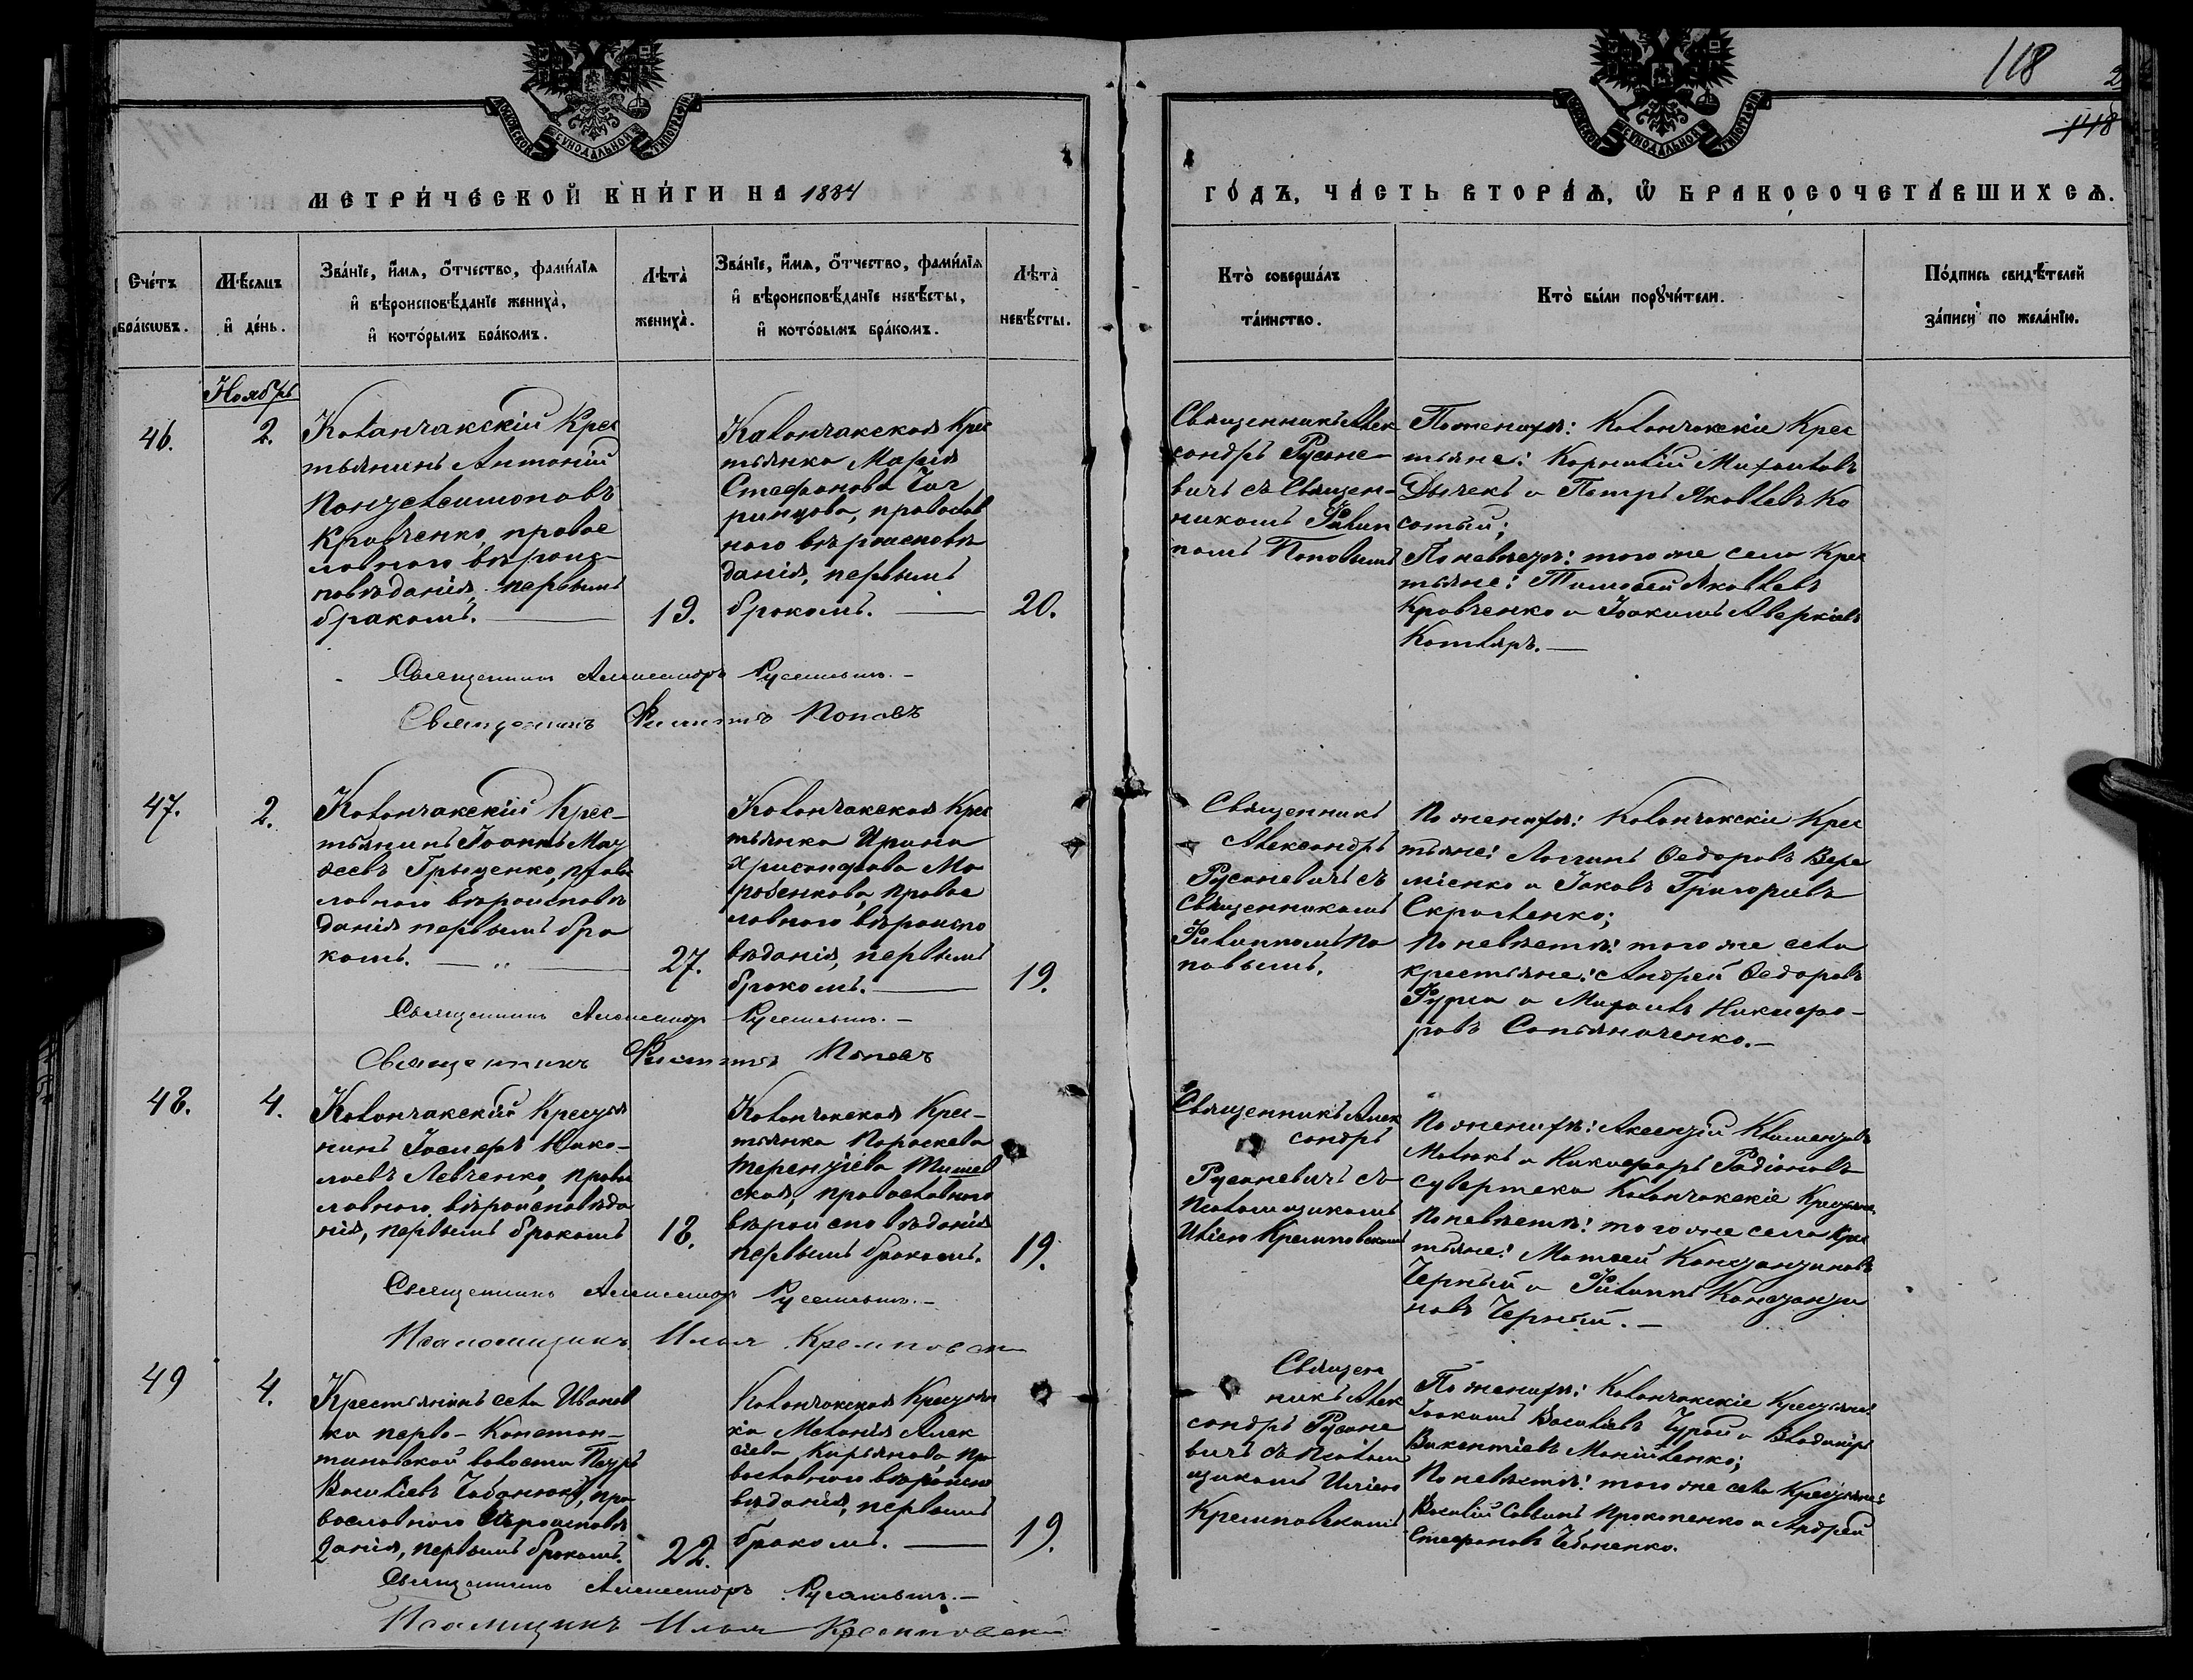 118
2
118
МОСКОВСКОЙ СѴНОДАЛЬНОЙ ТИПОГРАФІИ
МОСКОВСКОЙ СѴНОДАЛЬНОЙ ТИПОГРАФІИ
МЕТРИЧЕСКОЙ КНИГИ НА 1884
ГОДЪ, ЧАСТЬ ВТОРАЯ, Ѡ БРАКОСОЧЕТАВШИХСЯ.
Счетъ
браковъ.
Мѣсяцъ
и день.
Званіе, имя, отчество, фамилія
и вѣроисповѣданіе жениха,
и которымъ бракомъ.
Лѣта
жениха.
Званіе, имя, отчество, фамилія
и вѣроисповѣданіе невѣсты,
и которымъ бракомъ.
Лѣта
невѣсты.
Кто совершалъ
таинство.
Кто были поручители.
Подпись свидѣтелей
записи по желанію.
Ноябрь
46.
2.
Каланчакскій Крес
тьянинъ Антоній
Кравченко, правос
лавного вѣроис-
повѣданія, первымъ
бракомъ.
19.
Каланчакская Крес
тьянка Марія
Стефанова
православ
ного вѣроисповѣ
данія, первымъ
бракомъ.
20.
Священникъ Алек
сандръ Русане-
вичъ съ Священ-
никомъ Филип
помъ Поповымъ
По женихѣ: Каланчакскіе Крес
тьяне: Корнилій Михаиловъ
и Петръ Яковлевъ Ко
сатый;
По невѣстѣ: того же села Крес
тьяне: Тимофей Яковлевъ
Кравченко и Іоакимъ Аверкіевъ
Котляръ.
Священникъ Александръ Русаневичъ.
Священникъ Филиппъ Поповъ
47.
2.
Каланчакскій Крес-
тьянинъ Іоаннъ Мат
ѳеевъ Грыценко, право
славного вѣроисповѣ
данія первымъ бра
комъ.
27.
Каланчакская Крес
тьянка Ирина
Хрисанфова Ма
правос
лавного вѣроиспо
вѣданія, первымъ
бракомъ.
19.
Священникъ
Александръ
Русаневичъ съ
Священникомъ
Филиппомъ По
повымъ.
По женихѣ: Каланчакскіе Крес
тьяне: Логгинъ Ѳедоровъ Вере
міенко и Іаковъ Григорьевъ
По невѣстѣ: того же села
крестьяне: Андрей Ѳедоровъ
и Михаилъ Никифо-
ровъ
Священникъ Александръ Русаневичъ.
Священникъ Филиппъ Поповъ
48.
4.
Каланчакскій Крестья
нинъ Іосифъ Нико-
лаевъ Левченко, право
славного вѣроисповѣда
нія, первымъ бракомъ
18.
Каланчакская Крес-
тьянка Параскева
Терентіева
ская, православного
вѣроисповѣданія
первымъ бракомъ.
19.
Священникъ Алек
сандръ
Русаневичъ съ
псаломщикомъ
Иліею Кремповскимъ
По женихѣ: Авксентій Климентовъ
и Никифоръ Радіоновъ
Каланчакскіе Крестьяне
По невѣстѣ: того же села Крес
тьяне: Матѳей Константиновъ
Черный и Филиппъ Константи
новъ Черный.
Священникъ Александръ Русаневичъ.
Псаломщикъ Илья Кремповскій
49
4.
Крестьянинъ села Иванов
ки перво-Констан-
тиновской волости Петръ
Василіевъ Чабанюкъ, пра
вославного вѣроисповѣ
данія, первымъ бракомъ.
22.
Каланчакская Крестьян
ка Меланія Алек
сіева Кирьянова пра
вославного вѣроиспо
вѣданія, первымъ
бракомъ.
19.
Священ
никъ Алек
сандръ Русане
вичъ съ псалом
щикомъ Иліею
Кремповскимъ
По женихѣ: Каланчакскіе Крестьяне:
Іоакимъ Василіевъ Чурай и Владиміръ
Викентіевъ
По невѣстѣ: того же села Крестьяне:
Василій Саввинъ Прокопенко и Андрей
Стефановъ
Священникъ Александръ Русаневичъ.
Псаломщикъ Илья Кремповскій